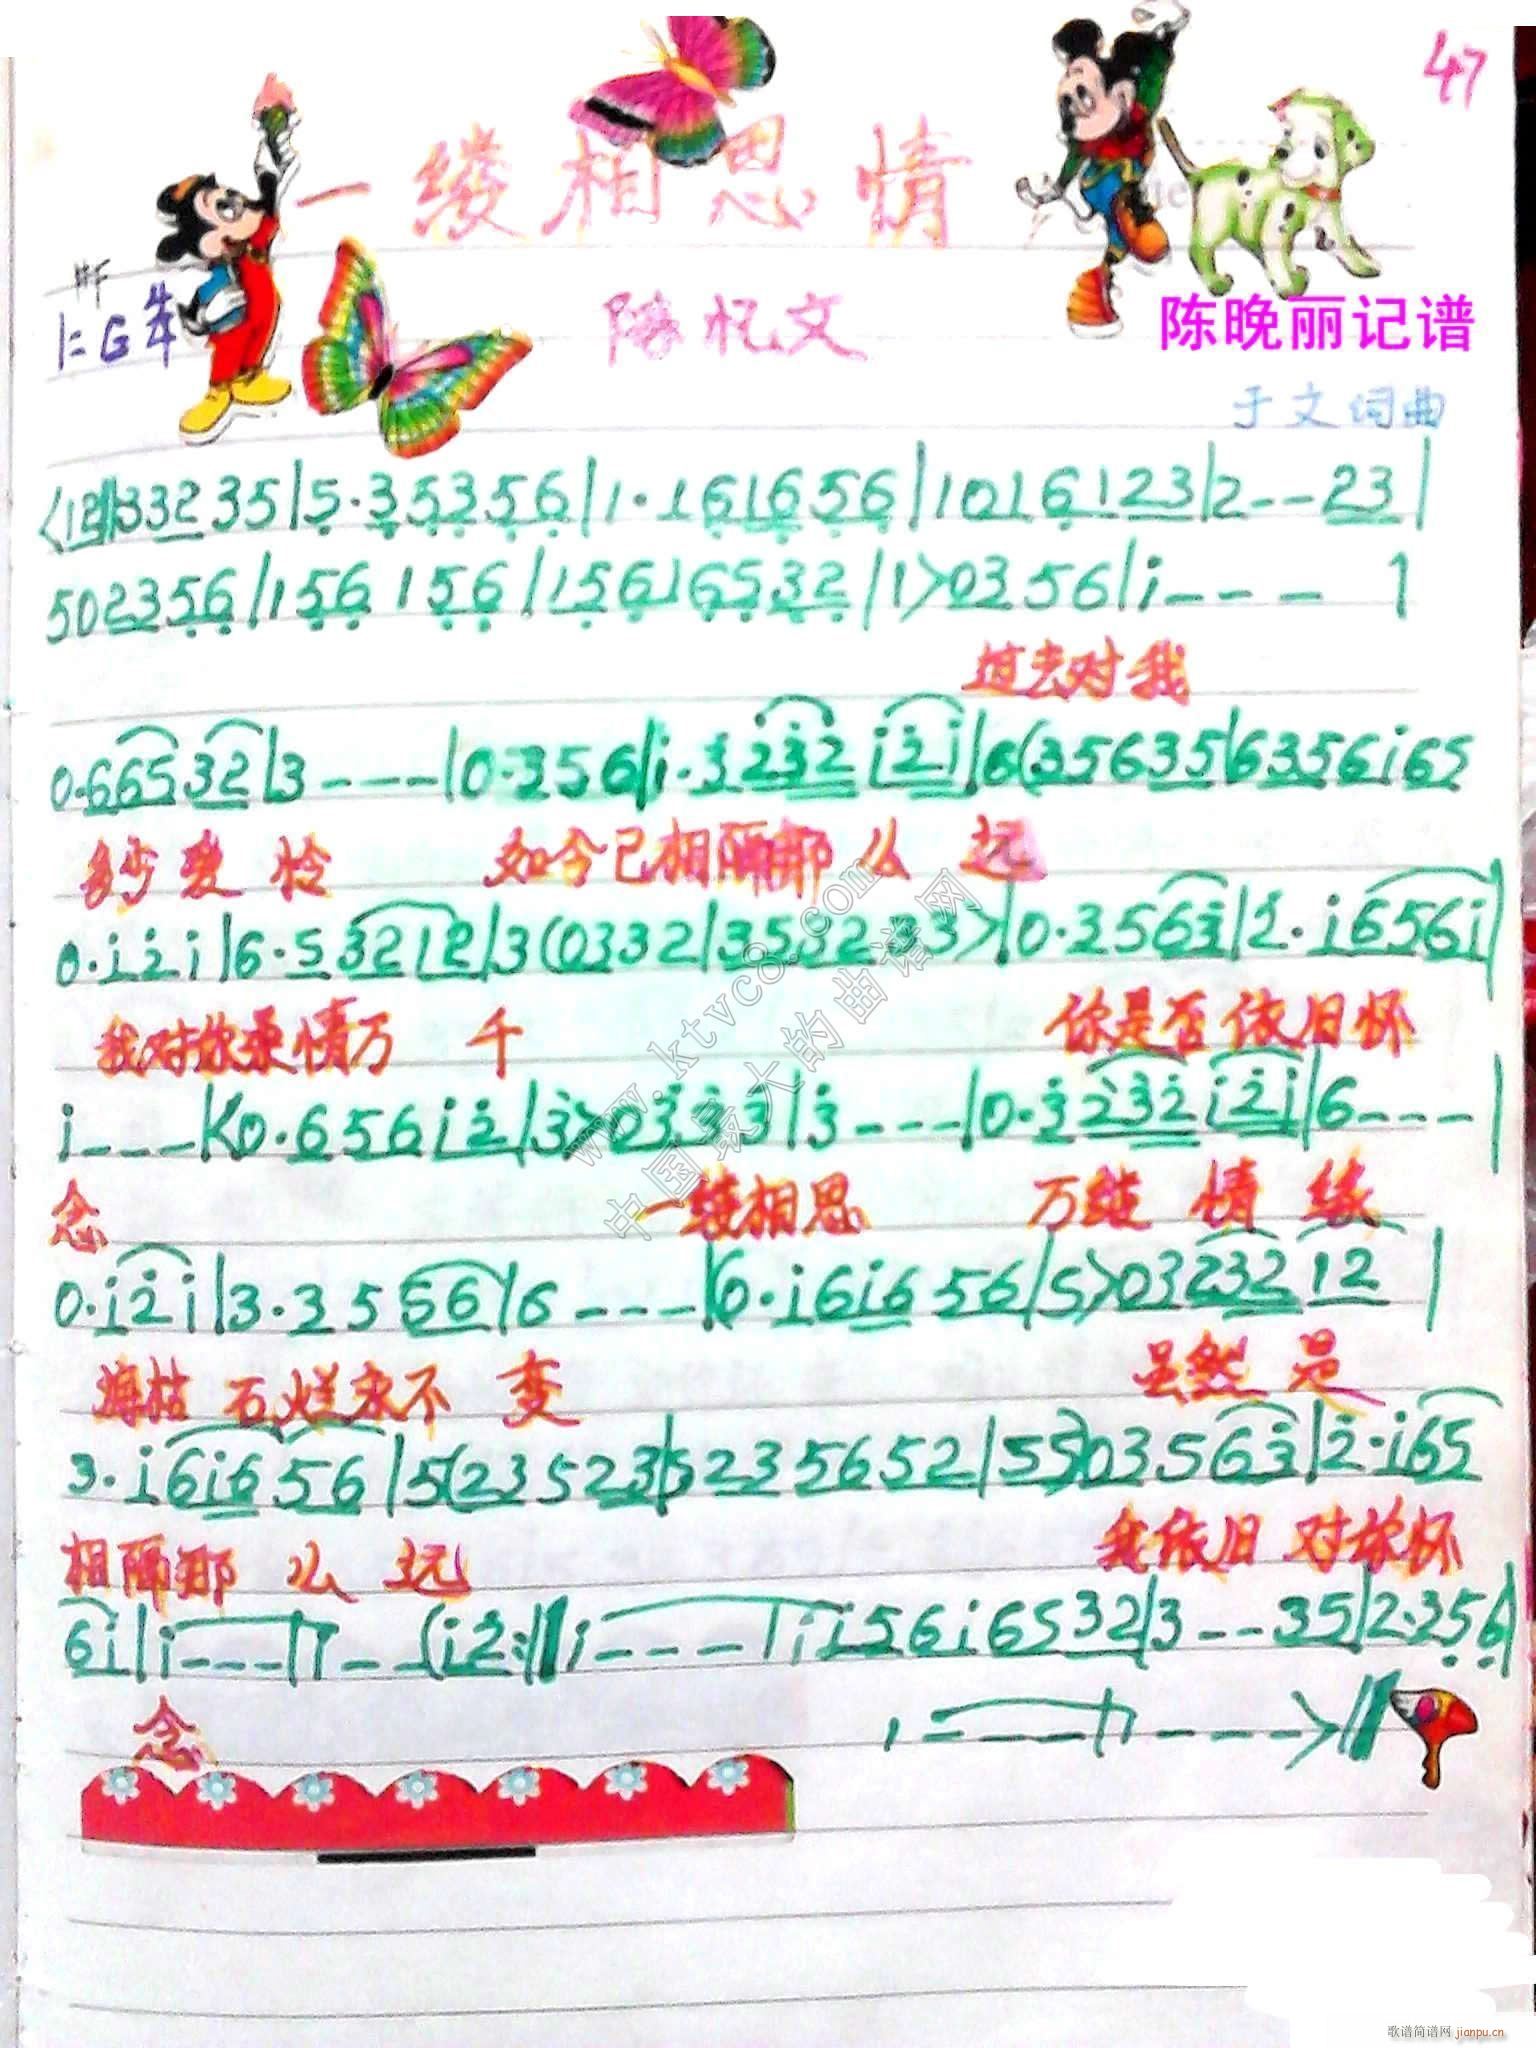 47
一缕相思情
#F
1=G 4/4
陈忆文
陈晚丽记谱
于文词曲
<12||:33235|5·353556|1·1616556|101612 3|2--23|
502356|156 156|156165532|1>0356|i---|
过去对我
0·66532|3----|0·356|i·32321 2i|6(3563 5|6356i65
多少爱怜 如今已相隔那么远
0·i2i|6·53212|3(0332|353233>|0·3563|2·i656i|
我对你柔情万千 你是否依旧怀
i---|<0·656i2|3>0333|3---|0·3232i2i|6----|
念 一缕相思 万缕情缘
0·i2i|3·3556|6----|6·i6i656|5>0323212|
海枯石烂永不变 虽然是
3·i6i656|5(23523|5235652|55)03563|2·i65
相隔那么远 我依旧对你怀
6i|i----|i--(i2:||i----|ii56i6532|3--35|2·356|
念
1----|1---->||
www.ktvc8.com
中国最大的曲谱网
歌谱简谱网 jianpu.cn